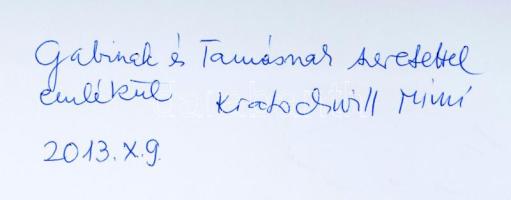 Gabinak és Tamásnak szeretettel
emlékül Kratochwill Mimi
2013.X.9.